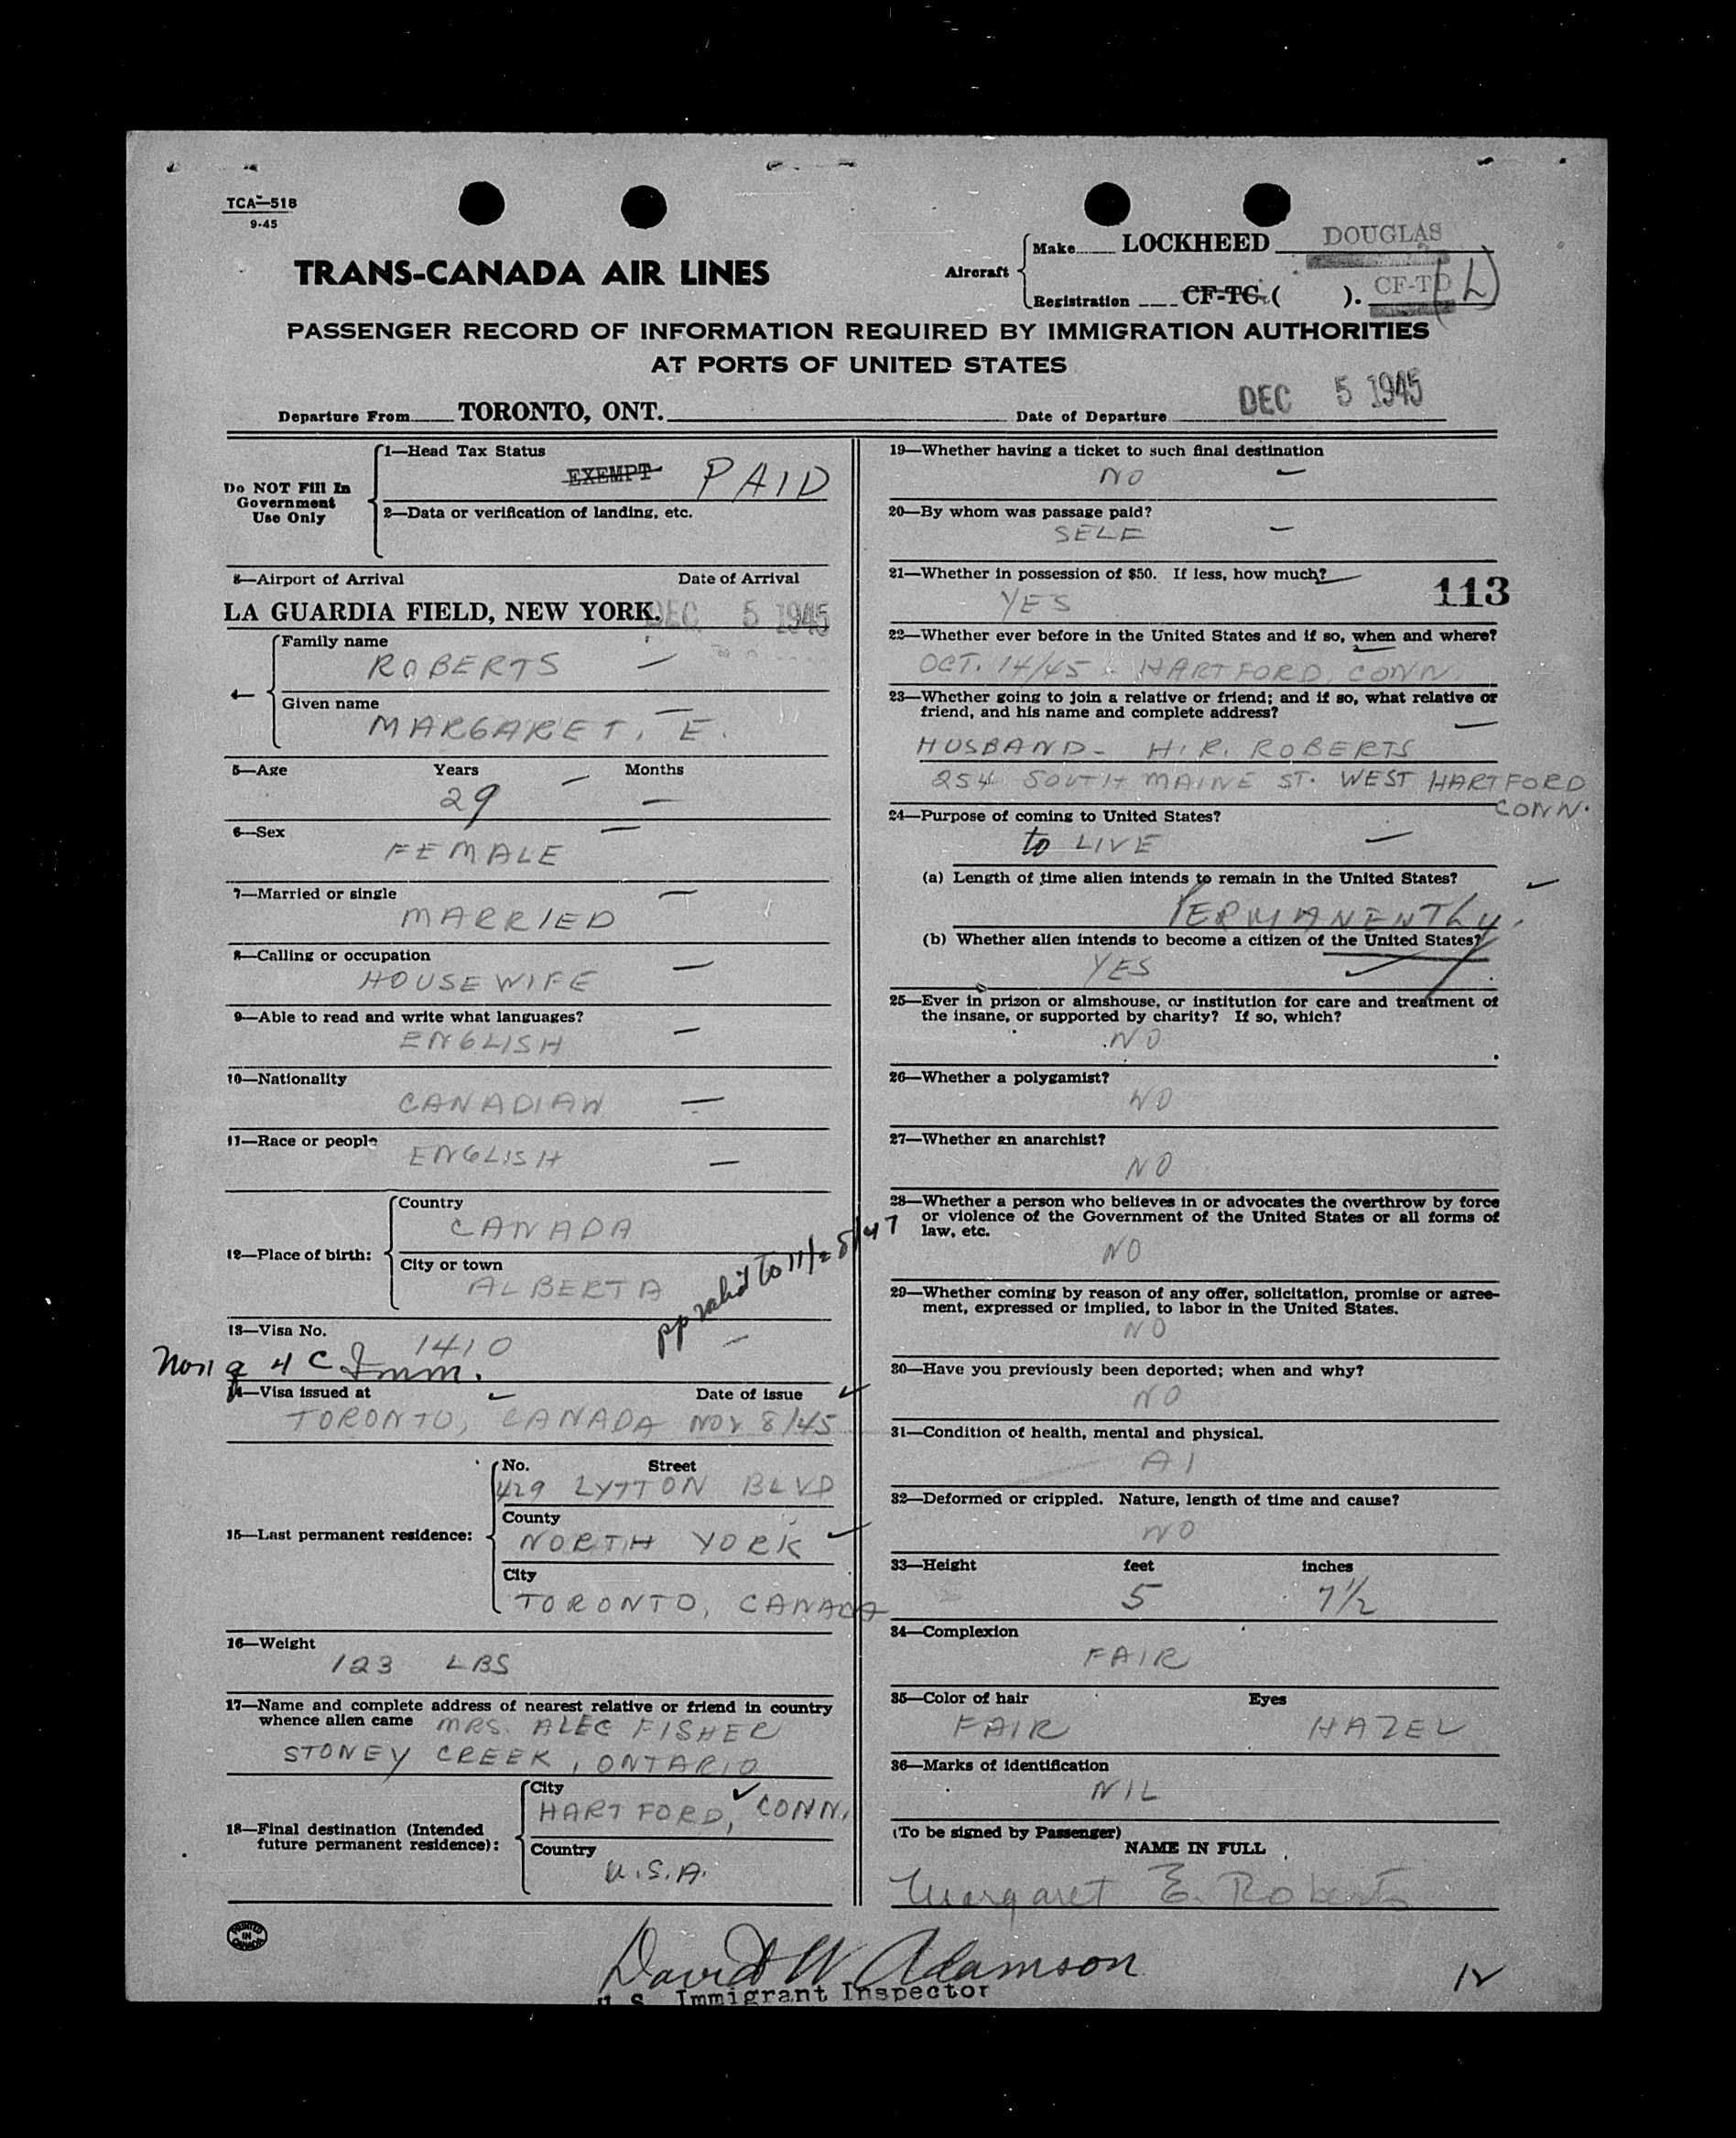 TCA—518
9-45
TRANS-CANADA AIR LINES
Aircraft
Make LOCKHEED DOUGLAS
Registration CF-TC ( ). CF-TD (L)
PASSENGER RECORD OF INFORMATION REQUIRED BY IMMIGRATION AUTHORITIES
AT PORTS OF UNITED STATES
Departure From TORONTO, ONT. Date of Departure DEC 5 1945
Do NOT Fill In
Government
Use Only
1—Head Tax Status
EXEMPT PAID
2—Data or verification of landing, etc.
3—Airport of Arrival Date of Arrival
LA GUARDIA FIELD, NEW YORK. DEC 5 1945
4—
Family name
ROBERTS —
Given name
MARGARET. E.
5—Age Years Months
29 —
6—Sex
FEMALE
7—Married or single
MARRIED
8—Calling or occupation
HOUSEWIFE
9—Able to read and write what languages?
ENGLISH
10—Nationality
CANADIAN
11—Race or people
ENGLISH
12—Place of birth:
Country
CANADA
City or town
ALBERTA
pp valid to 11/28/47
13—Visa No.
1410
Non q 4 C Imm.
14—Visa issued at Date of issue
TORONTO, CANADA NOV 8/45
15—Last permanent residence:
No. Street
429 LYTTON BLVD
County
NORTH YORK
City
TORONTO, CANADA
16—Weight
123 LBS
17—Name and complete address of nearest relative or friend in country
whence alien came MRS. ALEC FISHER
STONEY CREEK, ONTARIO
18—Final destination (Intended
future permanent residence):
City
HARTFORD, CONN.
Country
U.S.A.
PRINTED
IN
CANADA
19—Whether having a ticket to such final destination
NO —
20—By whom was passage paid?
SELF —
21—Whether in possession of $50. If less, how much?
YES
113
22—Whether ever before in the United States and if so, when and where?
OCT. 14/45 - HARTFORD, CONN
23—Whether going to join a relative or friend; and if so, what relative or
friend, and his name and complete address?
HUSBAND - H. R. ROBERTS
254 SOUTH MAINE ST. WEST HARTFORD
CONN.
24—Purpose of coming to United States?
to LIVE
(a) Length of time alien intends to remain in the United States?
PERMANENTLY.
(b) Whether alien intends to become a citizen of the United States?
YES
25—Ever in prizon or almshouse, or institution for care and treatment of
the insane, or supported by charity? If so, which?
NO
26—Whether a polygamist?
NO
27—Whether an anarchist?
NO
28—Whether a person who believes in or advocates the overthrow by force
or violence of the Government of the United States or all forms of
law, etc.
NO
29—Whether coming by reason of any offer, solicitation, promise or agree-
ment, expressed or implied, to labor in the United States.
NO
30—Have you previously been deported; when and why?
NO
31—Condition of health, mental and physical.
A1
32—Deformed or crippled. Nature, length of time and cause?
NO
33—Height feet inches
5 7½
34—Complexion
FAIR
35—Color of hair Eyes
FAIR HAZEL
36—Marks of identification
NIL
(To be signed by Passenger)
NAME IN FULL
Margaret E. Roberts
David W Adamson
U. S. Immigrant Inspector